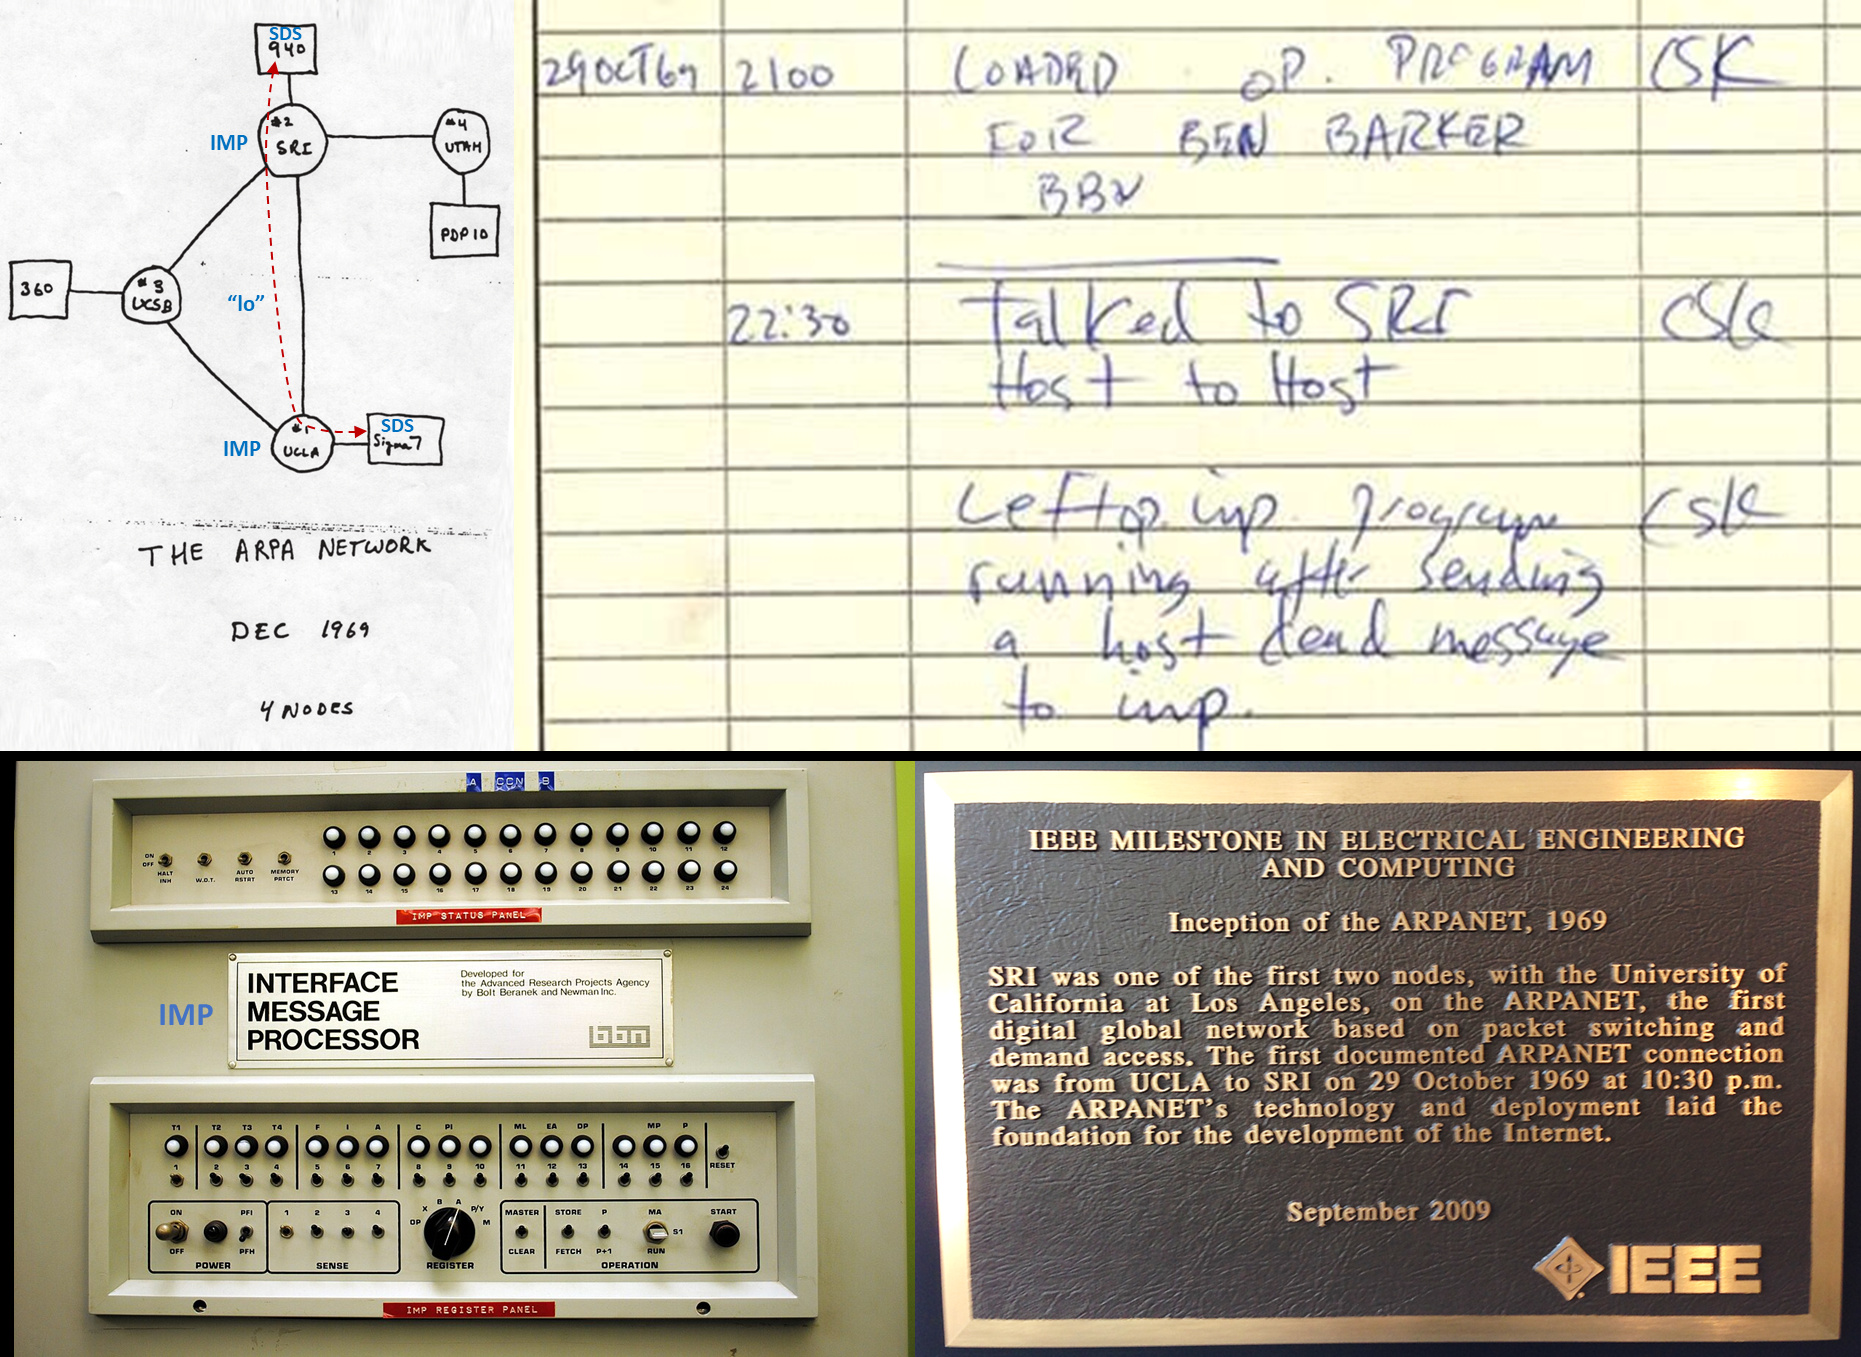 SDS
940
IMP
#2
SRI
#4
UTAH
PDP 10
360
#3
UCSB
"lo"
IMP
#1
UCLA
SDS
Sigma 7
THE ARPA NETWORK
DEC 1969
4 NODES
29 OCT 69 2100 LOADED OP. PROGRAM CSK
FOR BEN BARKER
BBN
22:30 Talked to SRI CSK
Host to Host
Left op. imp. program CSK
running after sending
a host dead message
to imp.
A CCN B
ON
OFF
HALT INH W.O.T. AUTO RSTRT MEMORY PRTCT
1 2 3 4 5 6 7 8 9 10 11 12
13 14 15 16 17 18 19 20 21 22 23 24
IMP STATUS PANEL
IMP
INTERFACE
MESSAGE
PROCESSOR
Developed for
the Advanced Research Projects Agency
by Bolt Beranek and Newman Inc.
bbn
T1 T2 T3 T4 F I A C PI ML EA DP MP P
1 2 3 4 5 6 7 8 9 10 11 12 13 14 15 16 RESET
ON PFI 1 2 3 4 OP X B A P/Y M MASTER STORE P MA S1 START
OFF PFH CLEAR FETCH P+1 RUN
POWER SENSE REGISTER OPERATION
IMP REGISTER PANEL
IEEE MILESTONE IN ELECTRICAL ENGINEERING
AND COMPUTING
Inception of the ARPANET, 1969
SRI was one of the first two nodes, with the University of
California at Los Angeles, on the ARPANET, the first
digital global network based on packet switching and
demand access. The first documented ARPANET connection
was from UCLA to SRI on 29 October 1969 at 10:30 p.m.
The ARPANET's technology and deployment laid the
foundation for the development of the Internet.
September 2009
IEEE